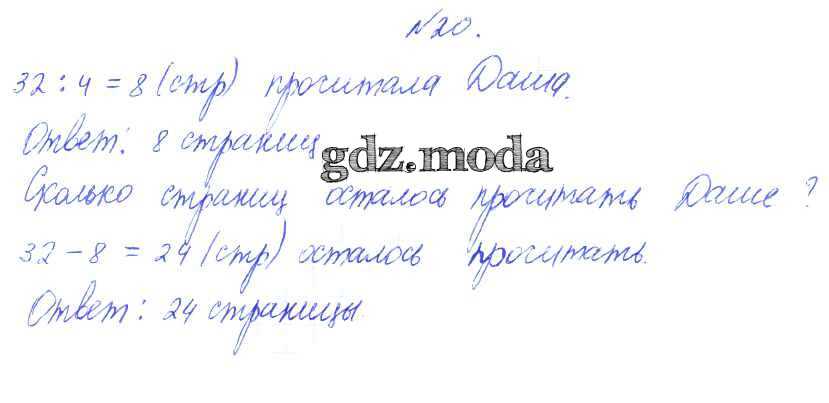 №20.
32 : 4 = 8 (стр) прочитала Даша.
Ответ: 8 страниц
gdz.moda
Сколько страниц осталось прочитать Даше?
32 - 8 = 24 (стр) осталось прочитать.
Ответ: 24 страницы